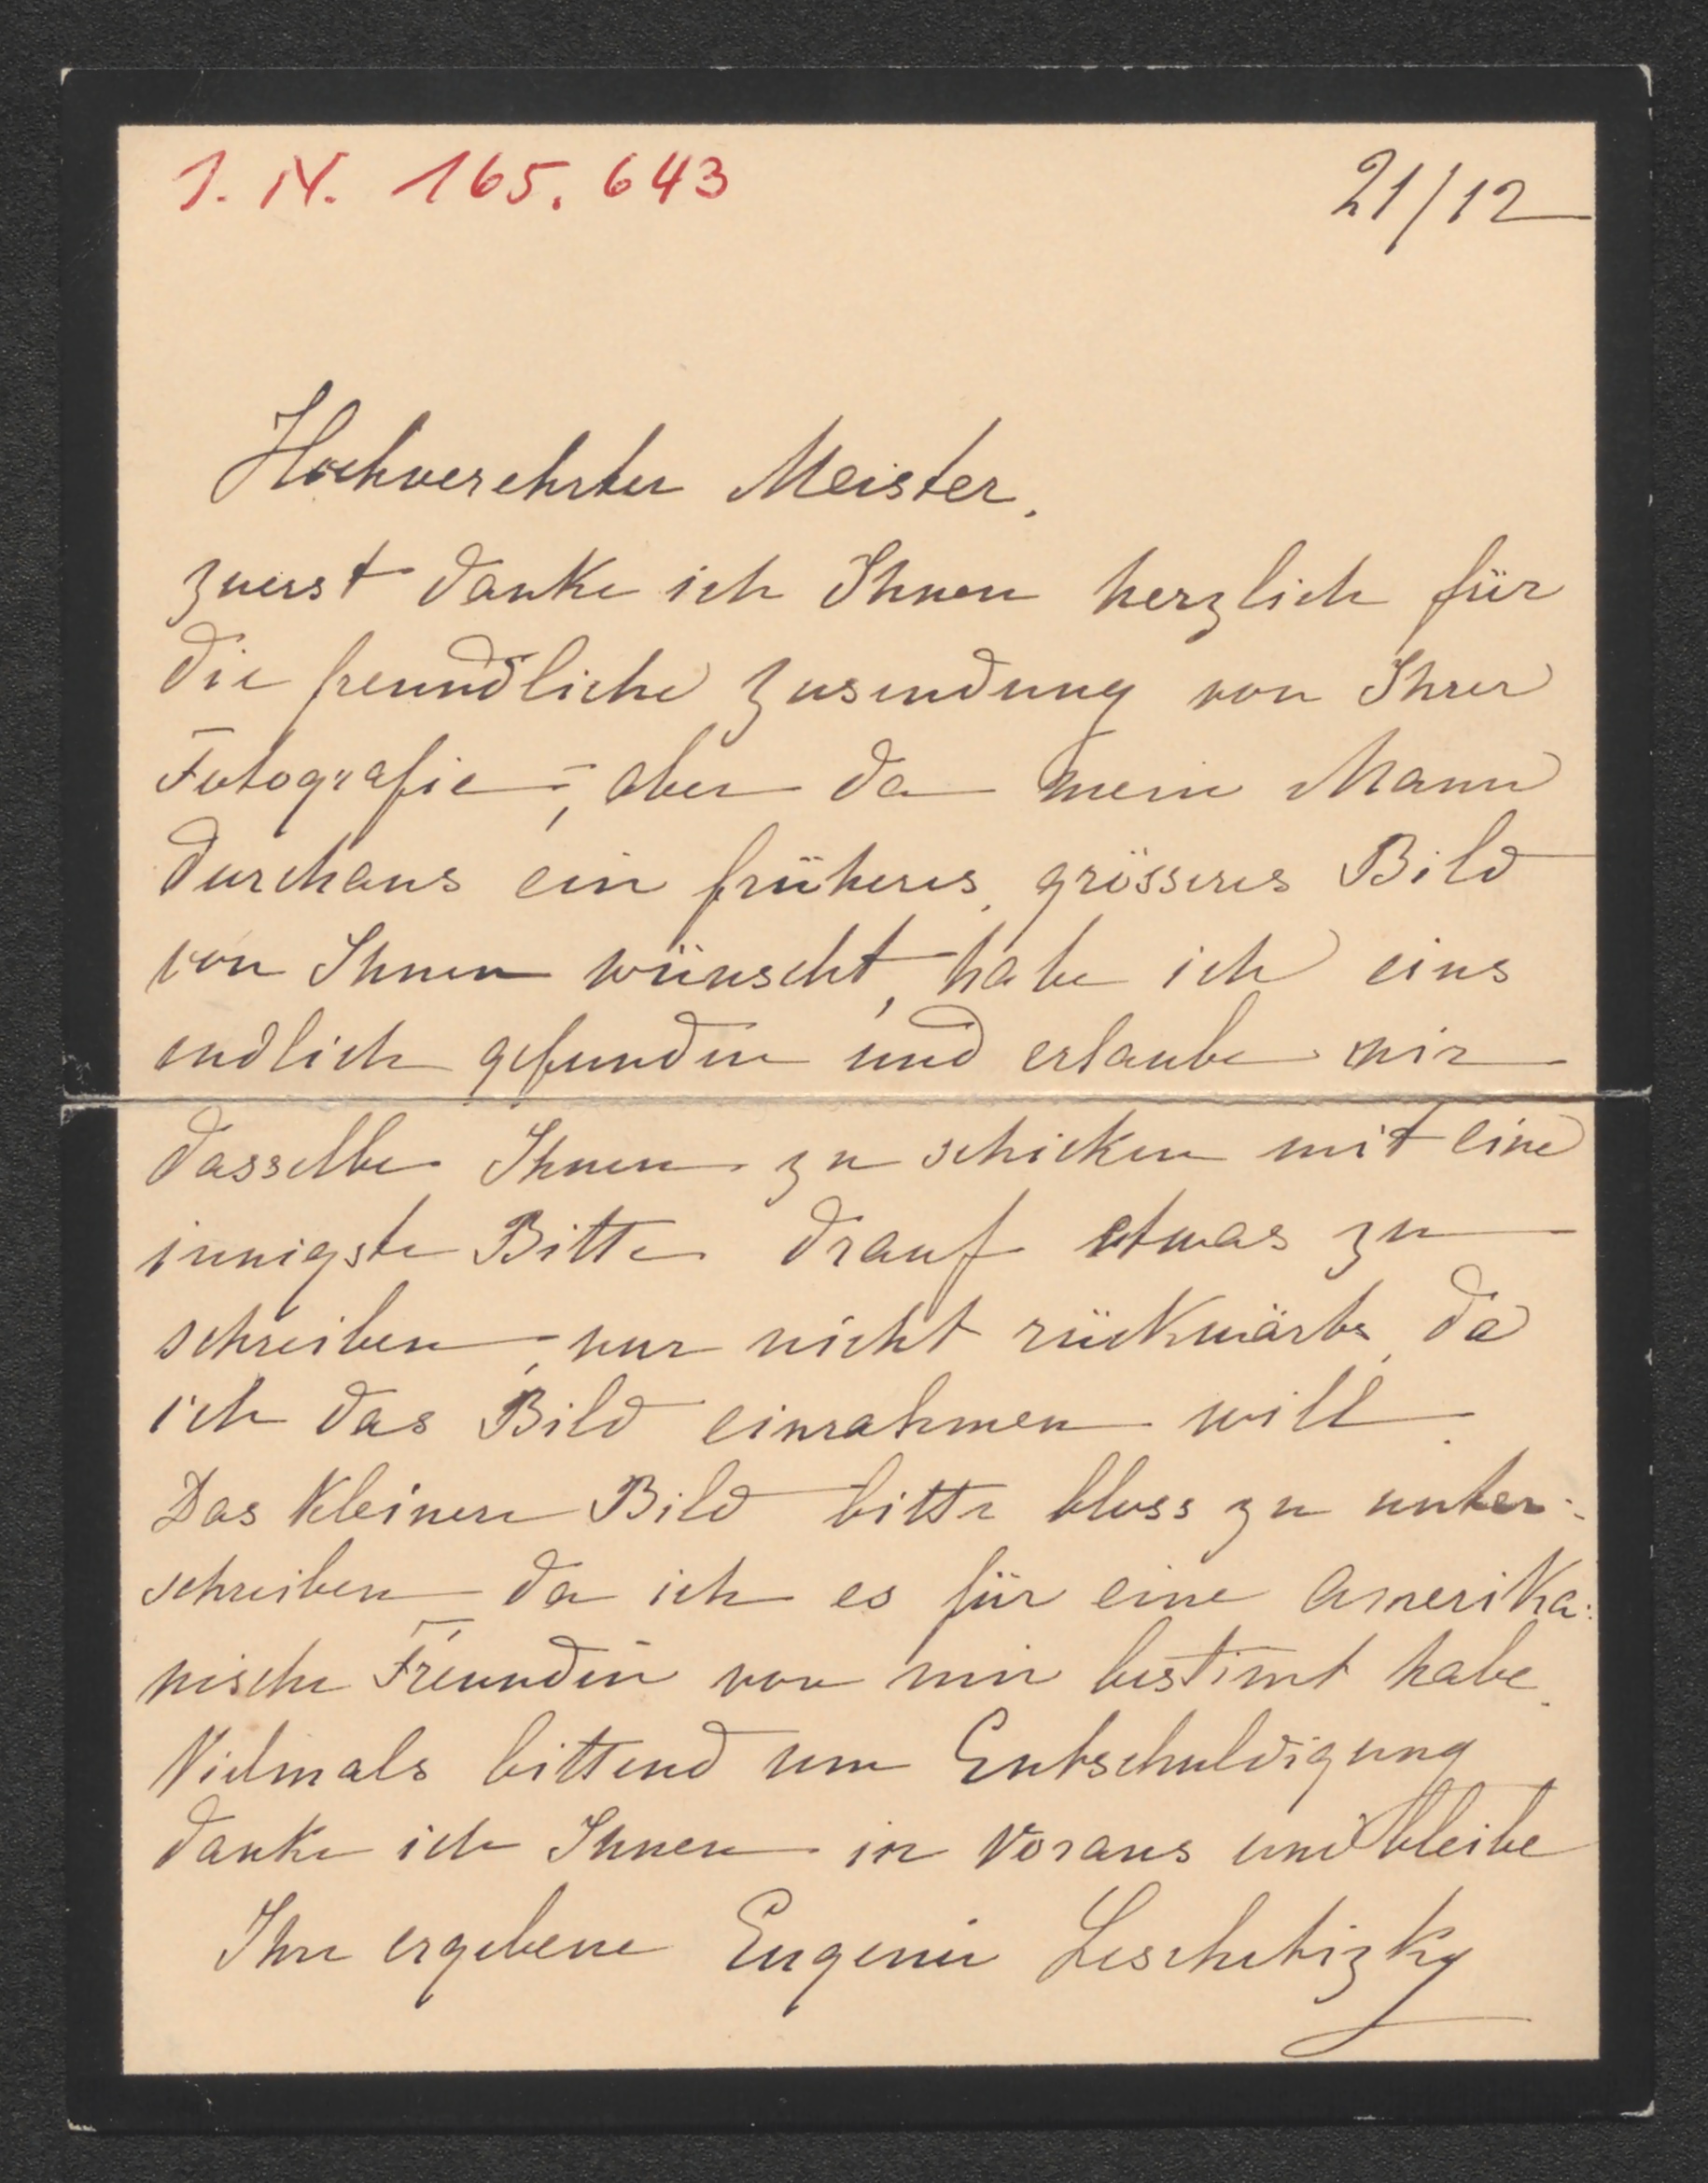 I. N. 165.643
21/12
Hochverehrter Meister,
zuerst danke ich Ihnen herzlich für
die freundliche Zusendung von Ihrer
Fotografie –, aber da mein Mann
durchaus ein früheres, grösseres Bild
von Ihnen wünscht, habe ich eins
endlich gefunden und erlaube mir
dasselbe Ihnen zu schicken mit eine
innigste Bitte drauf etwas zu
schreiben –, nur nicht rückwärts, da
ich das Bild einrahmen will.
Das kleinere Bild bitte bloss zu unter:
schreiben da ich es für eine amerika:
nische Freundin von mir bestimt habe.
Vielmals bittend um Entschuldigung
danke ich Ihnen in Voraus und bleibe
Ihre ergebene Eugenie Leschetizky